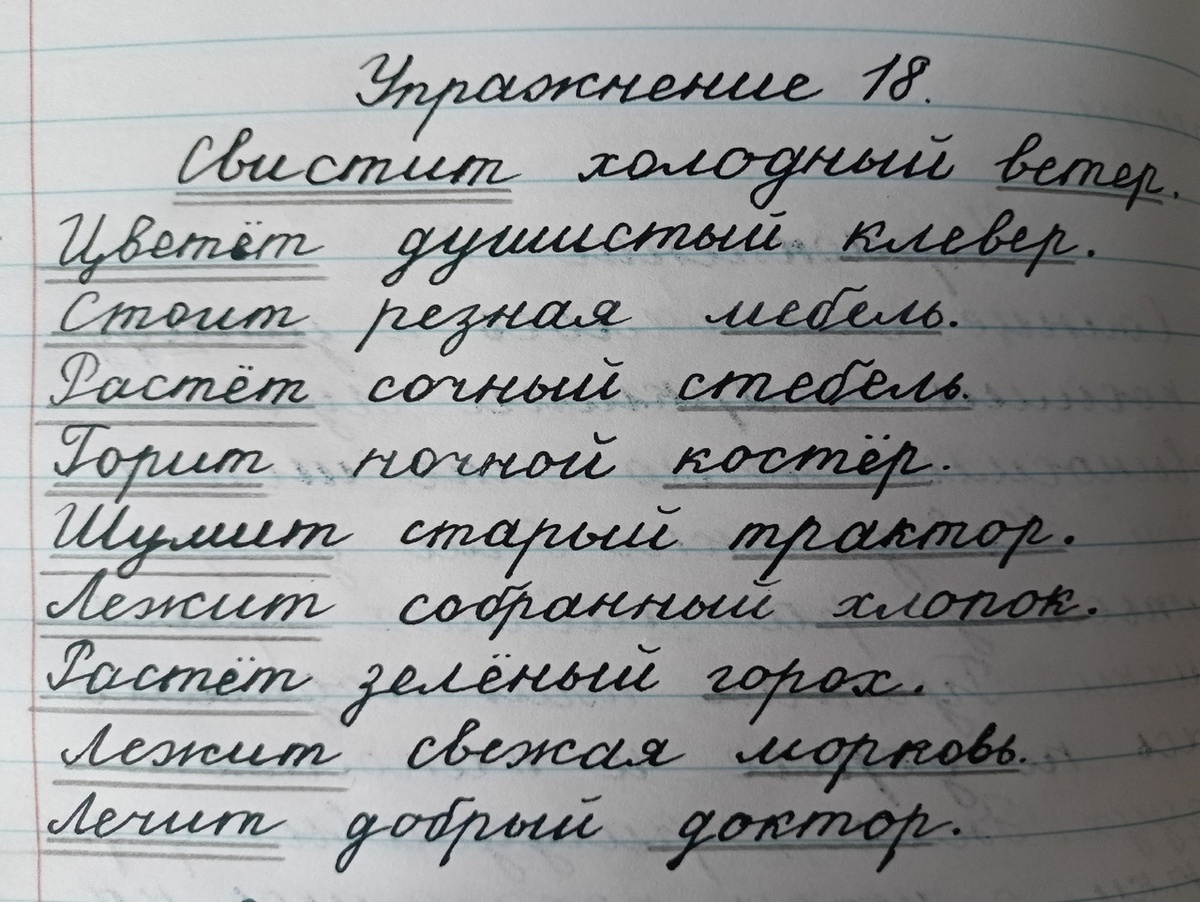 Упражнение 18.
Свистит холодный ветер.
Цветёт душистый клевер.
Стоит резная мебель.
Растёт сочный стебель.
Горит ночной костёр.
Шумит старый трактор.
Лежит собранный хлопок.
Растёт зелёный горох.
Лежит свежая морковь.
Лечит добрый доктор.